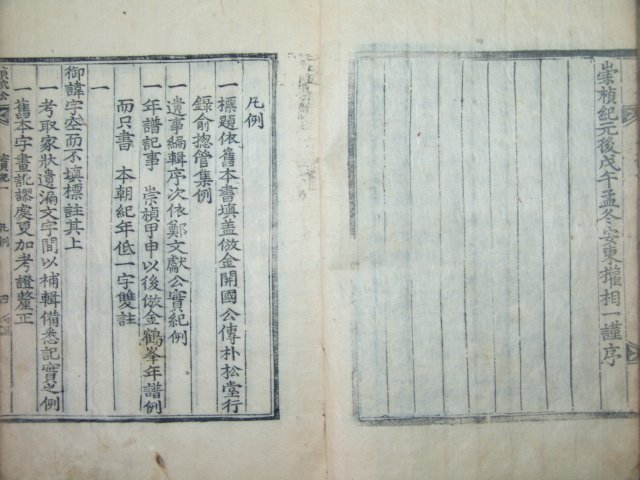 崇禎紀元後戊午孟冬安東權相一謹序
凡例
一標題依舊本書填盖倣金開國公傳朴松堂行
錄俞揔管集例
一遺事編輯序次依鄭文獻公實紀例
一年譜記事 崇禎甲申以後倣金鶴峯年譜例
而只書 本朝紀年低一字雙註
一
御諱字空而不填標註其上
一考取家狀遺漏文字間以補輯備悉記實之例
一舊本字畫訛謬處更加考證釐正
凡例
四